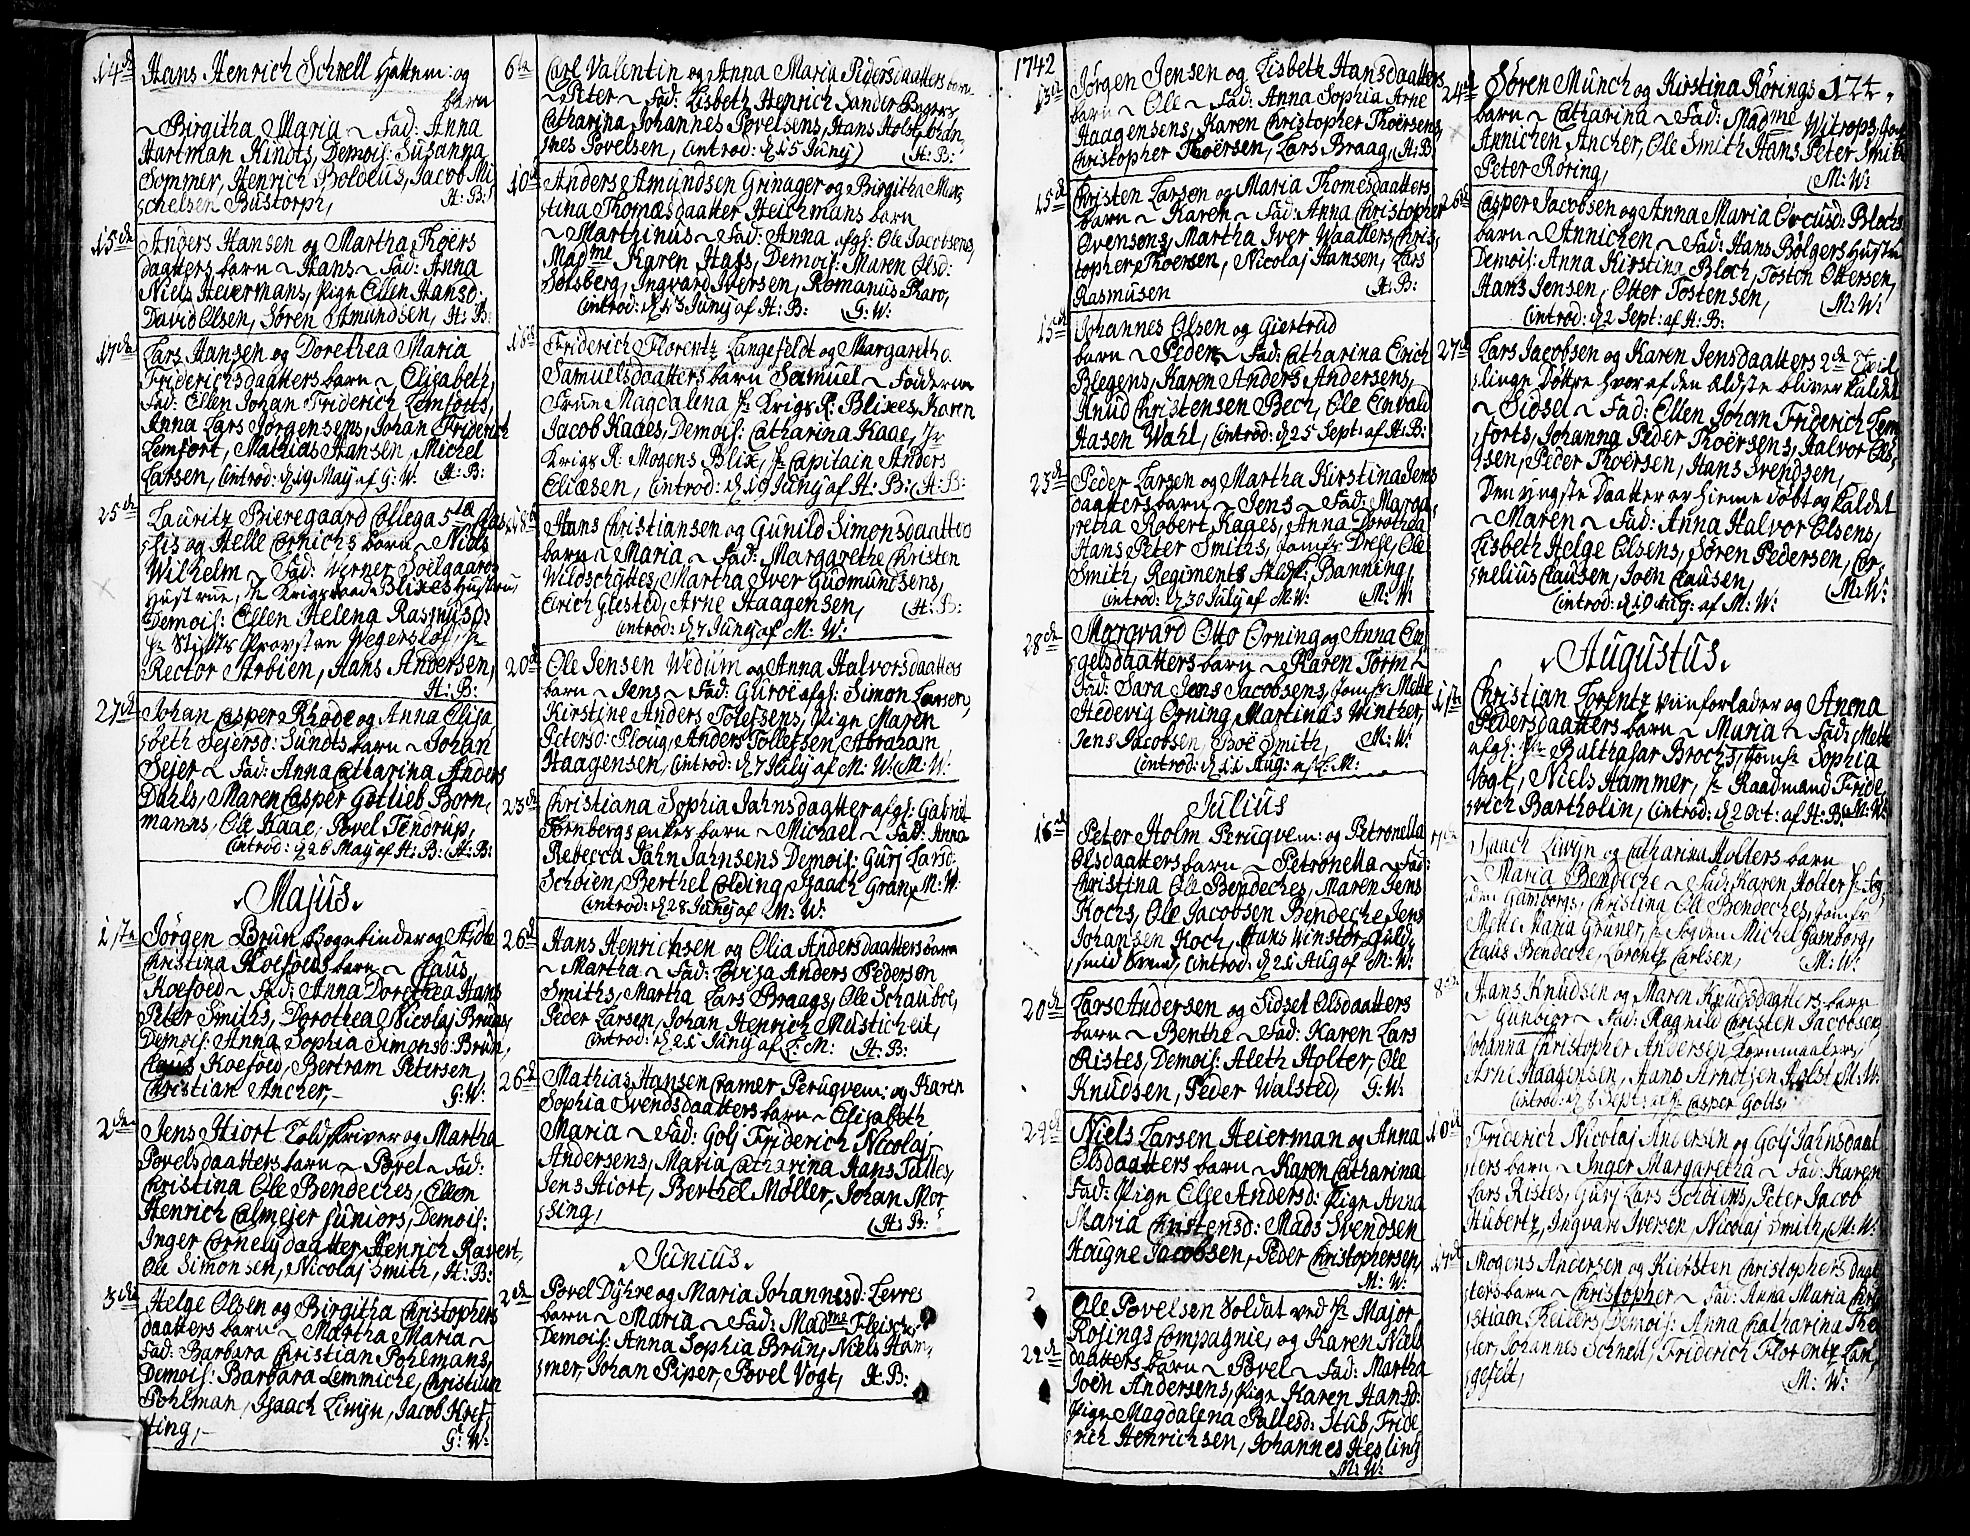 14de Hans Henrich Schnell Hattem: og
barn
~ Birgitha Maria ~ Fad: Anna
Hartman Kindts, Demois: Susanna
Sommer, Henrich Boldeus, Jacob Mi
schelsen Bustorph, H: B:
15de Anders Hansen og Martha Thoërs
daatters barn ~ Hans ~ Fad: Anna
Niels Heiermans, Pige Ellen Hansd:
David Olsen, Søren Amundsen, H: B:
17de Lars Hansen og Dorethea Maria
Friderichsdaatters barn ~ Elisabeth,
Fad: Ellen Johan Friderich Lemforts,
Anna Lars Jørgensens, Johan Friderich
Lemfort, Mathias Hansen, Michel
Larsen, Introd: d 19 May af G: W: H: B:
25de Lauritz Bieregaard Collega 5tæ Clas
sis og Helle Cornichs barn ~ Niels
Wilhelm ~ Fad: Werner Soelgaards
Hustrue, Hr Krigsraad Blixes Hustru,
Demois: Ellen Helena Rasmusd:
Hr Stifts Provsten Wegersløf, Hr
Rector Arbien, Hans Andersen,
H: B:
27de Johan Casper Rhode og Anna Elisa
beth Sejersd: Sundts barn ~ Johan
Sejer ~ Fad: Anna Catharina Anders
Dahls, Maren Casper Gotlieb Born-
manns, Ole Kaae, Povel Tendrup,
Introd: d 26 May af H: B: H: B:
Majus.
1ste Jørgen Brun Bogebinder og Aidte
Christina Koefoeds barn ~ Claus
Koefoed ~ Fad: Anna Dorothea Hans
Peter Smiths, Dorothea Nicolaj Bruns,
Demois: Anna Sophia Simonsd: Brun,
Claus Koefoed, Bertram Petersen,
Christian Ancher, G: W:
2den Jens Hiort Toldskriver og Martha
Povelsdaatters barn ~ Povel ~ Fad:
Christina Ole Bendeches, Ellen
Henrich Calmejer Juniors, Demois:
Inger Cornelysdaatter, Henrich Ravert,
Ole Simonsen, Nicolaj Smith, H: B:
3die Helge Olsen og Birgitha Christophers
daatters barn ~ Martha Maria ~
Fad: Barbara Christian Pohlmans,
Demois: Barbara Lemmiche, Christian
Pohlman, Isaach Liwyn, Jacob Kref-
ting, G: W:
6te Carl Valentin og Anna Maria Pedersdaatters barn
~ Peter ~ Fad: Lisbeth Henrich Sander
Catharina Johannes Povelsens, Hans Holst, Johan
nes Povelsen, Introd: d 15 Junij H: B:
10de Anders Amundsen Grinager og Birgitha Mar
tina Thomæsdaatter Heichmans barn
~ Marthinus ~ Fad: Anna afgl: Ole Jacobsens,
Madme Karen Hals, Demois: Maren Olsd:
Solsberg, Ingvard Iversen, Romanus Tharo,
Introd: d 13 Junij af H: B: G: W:
18de Friderich Florentz Langefeldt og Margaretha
Samuelsdaatters barn Samuel ~ Fadderne
Frue Magdalena Hr Krigs R: Blixes, Karen
Jacob Kaaes, Demois: Catharina Kaae, Hr
Krigs R: Mogens Blix, Hr Capitain Anders
Eliæsen, Introd: d 19 Junij af H: B: H: B:
18de Hans Christiansen og Gunild Simonsdaatters
barn ~ Maria ~ Fad: Margarethe Christen
Wildschüttes, Martha Iver Gudmundsens,
Erich Giested, Arne Haagensen, H: B:
Introd: d 7 Junij af M: W:
20de Ole Jensen Wedum og Anna Halvorsdaatters
barn ~ Jens ~ Fad: Guroë afgl: Simon Larsens,
Kirstine Anders Tolefsens, Pige Maren
Petersd: Ploug, Anders Tollefsen, Abraham
Haagensen, Introd: d 7 July af M: W: M: W:
23de Christiana Sophia Jahnsdaatter afgl: Gabriel
Tornbergs enkes barn ~ Michael ~ Fad: Anna
Rebecca Jahn Jahnsens Demois: Gurj Larsd:
Schøien, Berthel Colding, Isaach Gran, M: W:
Introd: d 28 Junij af M: W:
26de Hans Henrichsen og Olia Andersdaatters barn
~ Martha ~ Fad: Lovisa Anders Pedersen
Smiths, Martha Lars Braags, Ole Schauboe,
Peder Larsen, Johan Henrich Musticheit,
Introd: d 21 Junij af F: M: H: B:
26de Mathias Hansen Cramer Peruqvem: og Karen
Sophia Svendsdaatters barn ~ Elisabeth
Maria ~ Fad: Golj Friderich Nicolaj
Andersens, Maria Catharina Hans Talles,
Jens Hiort, Berthel Møller, Johan Mor
sing, H: B:
Junius.
2den Povel Dyhre og Maria Johannesd: Levres
barn ~ Maria ~ Fad: Madme Fleischer
Demois: Anna Sophia Brun, Niels Ham-
mer, Johan Piper, Povel Vogt, H: B:
1742
13de Jørgen Jensen og Lisbeth Hansdaatters
barn ~ Ole ~ Fad: Anna Sophia Arne
Haagensens, Karen Christopher Thoërsens,
Christopher Thoërsen, Lars Braag, H: B:
15de Christen Larsen og Maria Thomesdaatters
barn ~ Karen ~ Fad: Anna Christopher
Ovensens, Martha Iver Waatters, Chris-
topher Thoersen, Nicolaj Hansen, Lars
Rasmusen H: B:
15de Johannes Olsen og Giertrud
barn ~ Peder ~ Fad: Catharina Erich
Blegens, Karen Anders Andersens,
Knud Christensen Bech, Ole Enwald
Hasen Wahl, Introd: d 25 Sept: af H: B:
23de Peder Larsen og Martha Kirstina Jens
daatters barn ~ Jens ~ Fad: Marga-
retha Robert Kages, Anna Dorothea
Hans Peter Smiths, Jomfr Drese, Ole
Smith, Regiments Feldsk: Banning,
Introd: d 30 July af M: W: M: W:
28de Marqvard Otto Orning og Anna En
gelsdaatters barn ~ Karen Torm ~
Fad: Sara Jens Jacobsens, Jomfr Mette
Hedevig Orning, Martinus Winther,
Jens Jacobsen, Boë Smith, M: W:
Introd: d 11 Aug: af F: M:
Julius
18de Peter Holm Peruqvem: og Petronella
Olsdaatters barn ~ Petronella ~ Fad:
Christina Ole Bendeches, Maren Jens
Kochs, Ole Jacobsen Bendeche, Jens
Johansen Koch, Hans Winstor Guld-
smid Svend, Introd: d 21 Aug af M: W:
20de Lars Andersen og Sidsel Olsdaatters
barn ~ Benthe ~ Fad: Karen Lars
Ristes, Demois: Aleth Holter, Ole
Knudsen, Peder Walsted, G: W:
24de Niels Larsen Heierman og Anna
Olsdaatters barn ~ Karen Catharina
Fad: Pige Else Andersd: Pige Anna
Maria Christensd: Mads Svendsen
Hougne Jacobsen, Peder Christophersen,
M: W:
22de Ole Povelsen Soldat ved Hr Major
Rosings Compagnie, og Karen Niels
daatters barn ~ Povel ~ Fad: Martha
Joën Andersens, Pige Karen Hansd:
Pige Magdalena Pallesd: Stub, Fride
rich Henrichsen, Johannes Hesling
M: W:
24de Søren Munch og Kirstina Rørings 174.
barn ~ Catharina ~ Fad: Madme Witrops, Jomf
Annichen Ancher, Ole Smith Hans Peter Smith
Peter Røring, M: W:
26de Casper Jacobsen og Anna Maria Orcusd: Blochs
barn ~ Annichen ~ Fad: Hans Bølgers Hustru
Demois: Anna Kirstina Bloch, Tosten Ottersen,
Hans Jensen, Otter Tostensen, M: W:
Introd: d 2 Sept: af H: B:
27de Lars Jacobsen og Karen Jensdaatters 2de Tvil
linge Døttre hvor af den Ældste bliver kaldet
~ Sidsel ~ Fad: Ellen Johan Friderich Lem
forts, Johanna Peder Thoërsens, Halvor Ol-
sen, Peder Thoërsen, Hans Svendsen,
Den yngste Daatter er hiemme døbt og kaldet
~ Maren ~ Fad: Anna Halvor Olsens,
Lisbeth Helge Olsens, Søren Pedersen, Cor-
nelius Clausen, Joen Clausen,
Introd: d 19 Aug: af M: W: M: W:
Augustus.
1ste Christian Lorentz Viinforlader og Anna
Pedersdaatters barn ~ Maria ~ Fad: Mette
afgl: Hr Balthasar Brochs, Jomfr Sophia
Vogt, Niels Hammer, Hr Raadmand Fride-
rich Bartholin, Introd: d 2 Oct: af H: B: M: W:
7de Isaach Liwyn og Catharina Holters barn
~ Maria Bendeche ~ Fad: Karen Holter Hr Fog
den Gamborgs, Christina Ole Bendeches, Jomfr
Mette Maria Gruner, Hr Fogden Michel Gamborg,
Claus Bendeche, Lorentz Carlsen, M: W:
8de Hans Knudsen og Maren Knudsdaatters barn
~ Gunbior ~ Fad: Ragnild Christen Jacobsens
Johanna Christopher Andersen Kornmaalers,
Arne Haagensen, Hans Arnotsen Holst M: W:
Introd: d 8 Sept: af Hr Casper Golts
10de Friderich Nicolaj Andersen og Golj Jahnsdaat
ters barn ~ Inger Margaretha ~ Fad: Karen
Lars Ristes, Gurj Lars Schøiens, Peter Jacob
Hubertz, Ingvar Iversen, Nicolaj Smith, M: W:
17de Mogens Andersen og Kiersten Christophers daat
ters barn ~ Christopher ~ Fad: Anna Maria Chri
stian Theilers, Demois: Anna Catharina The
ler, Johannes Schnell, Friderich Florentz Lan-
gefelt, M: W: